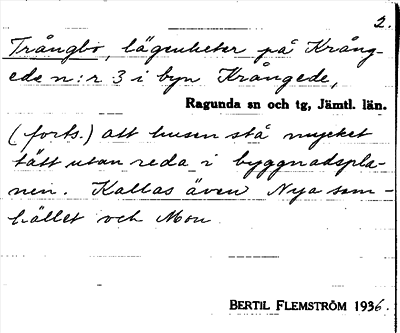 2.
Trångbo, lägenheter på Krång-
ede n:r 3 i byn Krångede,
Ragunda sn och tg, Jämtl. län.
(forts.) att husen stå mycket
tätt utan reda i byggnadspla-
nen. Kallas även Nya sam-
hället och Mon
BERTIL FLEMSTRÖM 1936.